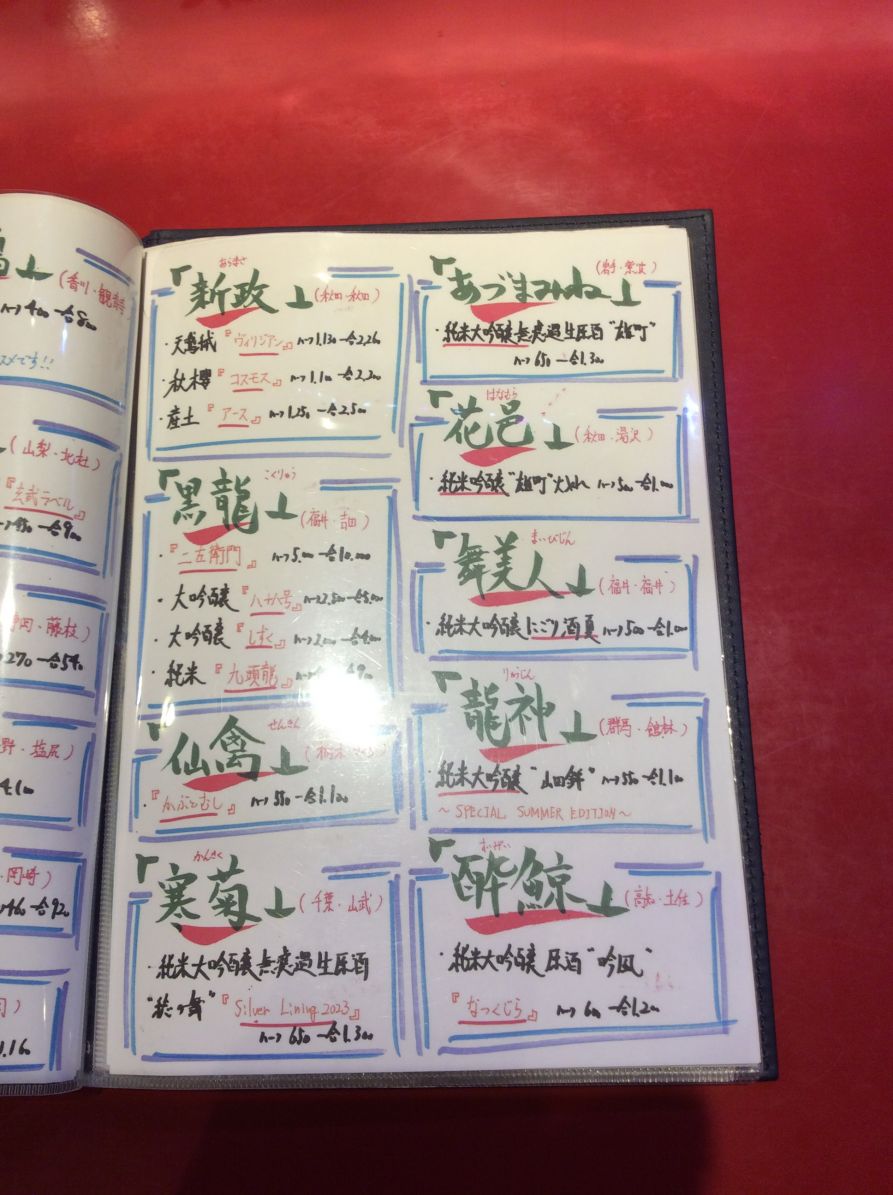 (香川・観音寺)
スメです!!
(山梨・北杜)
玄武ラベル』
岡・藤枝)
野・塩尻)
・岡崎)
あらまさ
「新政」(秋田・秋田)
・天鵞絨『ヴィリジアン』ハーフ1.130 一合2.260
・秋櫻『コスモス』ハーフ1.100 一合2.200
・産土『アース』ハーフ1.250 一合2.500
こくりゅう
「黒龍」(福井・吉田)
・『二左衛門』ハーフ5.000 一合10.000
・大吟醸『八十八号』
・大吟醸『しずく』ハーフ2.000 一合4.000
・純米『九頭龍』
せんきん
「仙禽」
・『かぶとむし』ハーフ550 一合1.100
かんきく
「寒菊」(千葉・山武)
・純米大吟醸無濾過生原酒
『Silver Lining 2023』
ハーフ650 一合1.300
「あづまみね」(岩手・紫波)
・純米大吟醸無濾過生原酒"雄町"
ハーフ650 一合1.300
はなむら
「花邑」(秋田・湯沢)
・純米吟醸"雄町"火入れ ハーフ500 一合1.000
まいびじん
「舞美人」(福井・福井)
・純米大吟醸にごり酒夏 ハーフ500 一合1.000
りゅうじん
「龍神」(群馬・館林)
・純米大吟醸"山田錦" ハーフ550 一合1.100
~SPECIAL SUMMER EDITION~
すいげい
「酔鯨」(高知・土佐)
・純米大吟醸 原酒"吟風"
『なつくじら』ハーフ600 一合1.200